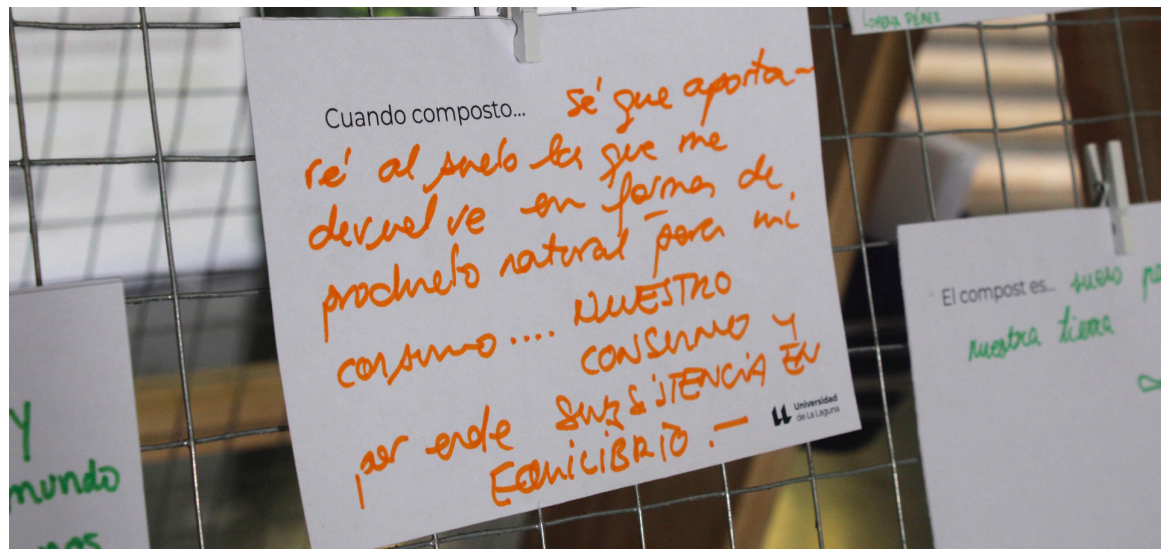 LORENA PÉREZ
Cuando composto... sé que aporta-
ré al suelo lo que me
devuelve en formas de
producto natural para mi
consumo.... NUESTRO
CONSUMO Y
por ende SUBSISTENCIA EN
EQUILIBRIO.-
Universidad
de La Laguna
El compost es...
nuestra tierra
Y
mundo